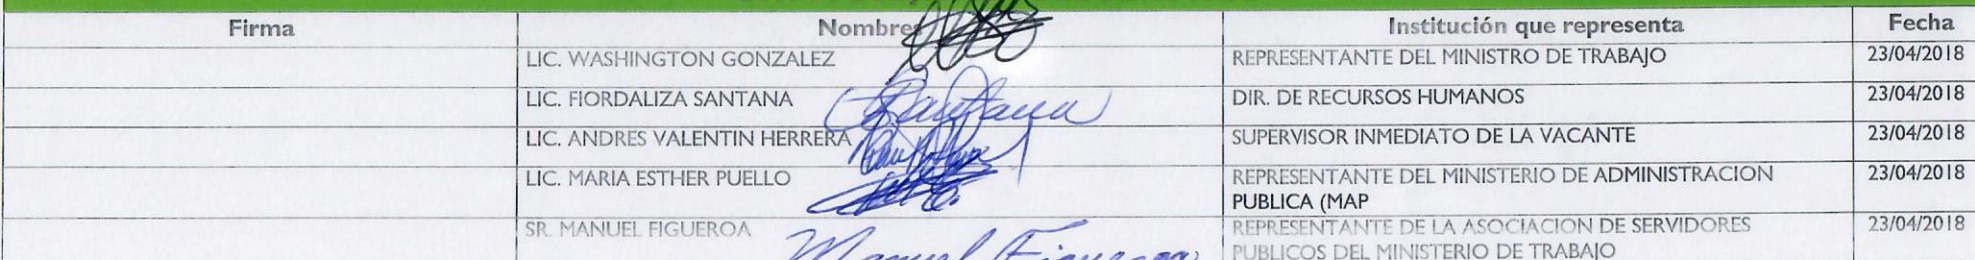 Firma Nombres Institución que representa Fecha
LIC. WASHINGTON GONZALEZ REPRESENTANTE DEL MINISTRO DE TRABAJO 23/04/2018
LIC. FIORDALIZA SANTANA DIR. DE RECURSOS HUMANOS 23/04/2018
LIC. ANDRES VALENTIN HERRERA SUPERVISOR INMEDIATO DE LA VACANTE 23/04/2018
LIC. MARIA ESTHER PUELLO REPRESENTANTE DEL MINISTERIO DE ADMINISTRACION 23/04/2018
PUBLICA (MAP
SR. MANUEL FIGUEROA REPRESENTANTE DE LA ASOCIACION DE SERVIDORES 23/04/2018
Manuel Figueroa PUBLICOS DEL MINISTERIO DE TRABAJO